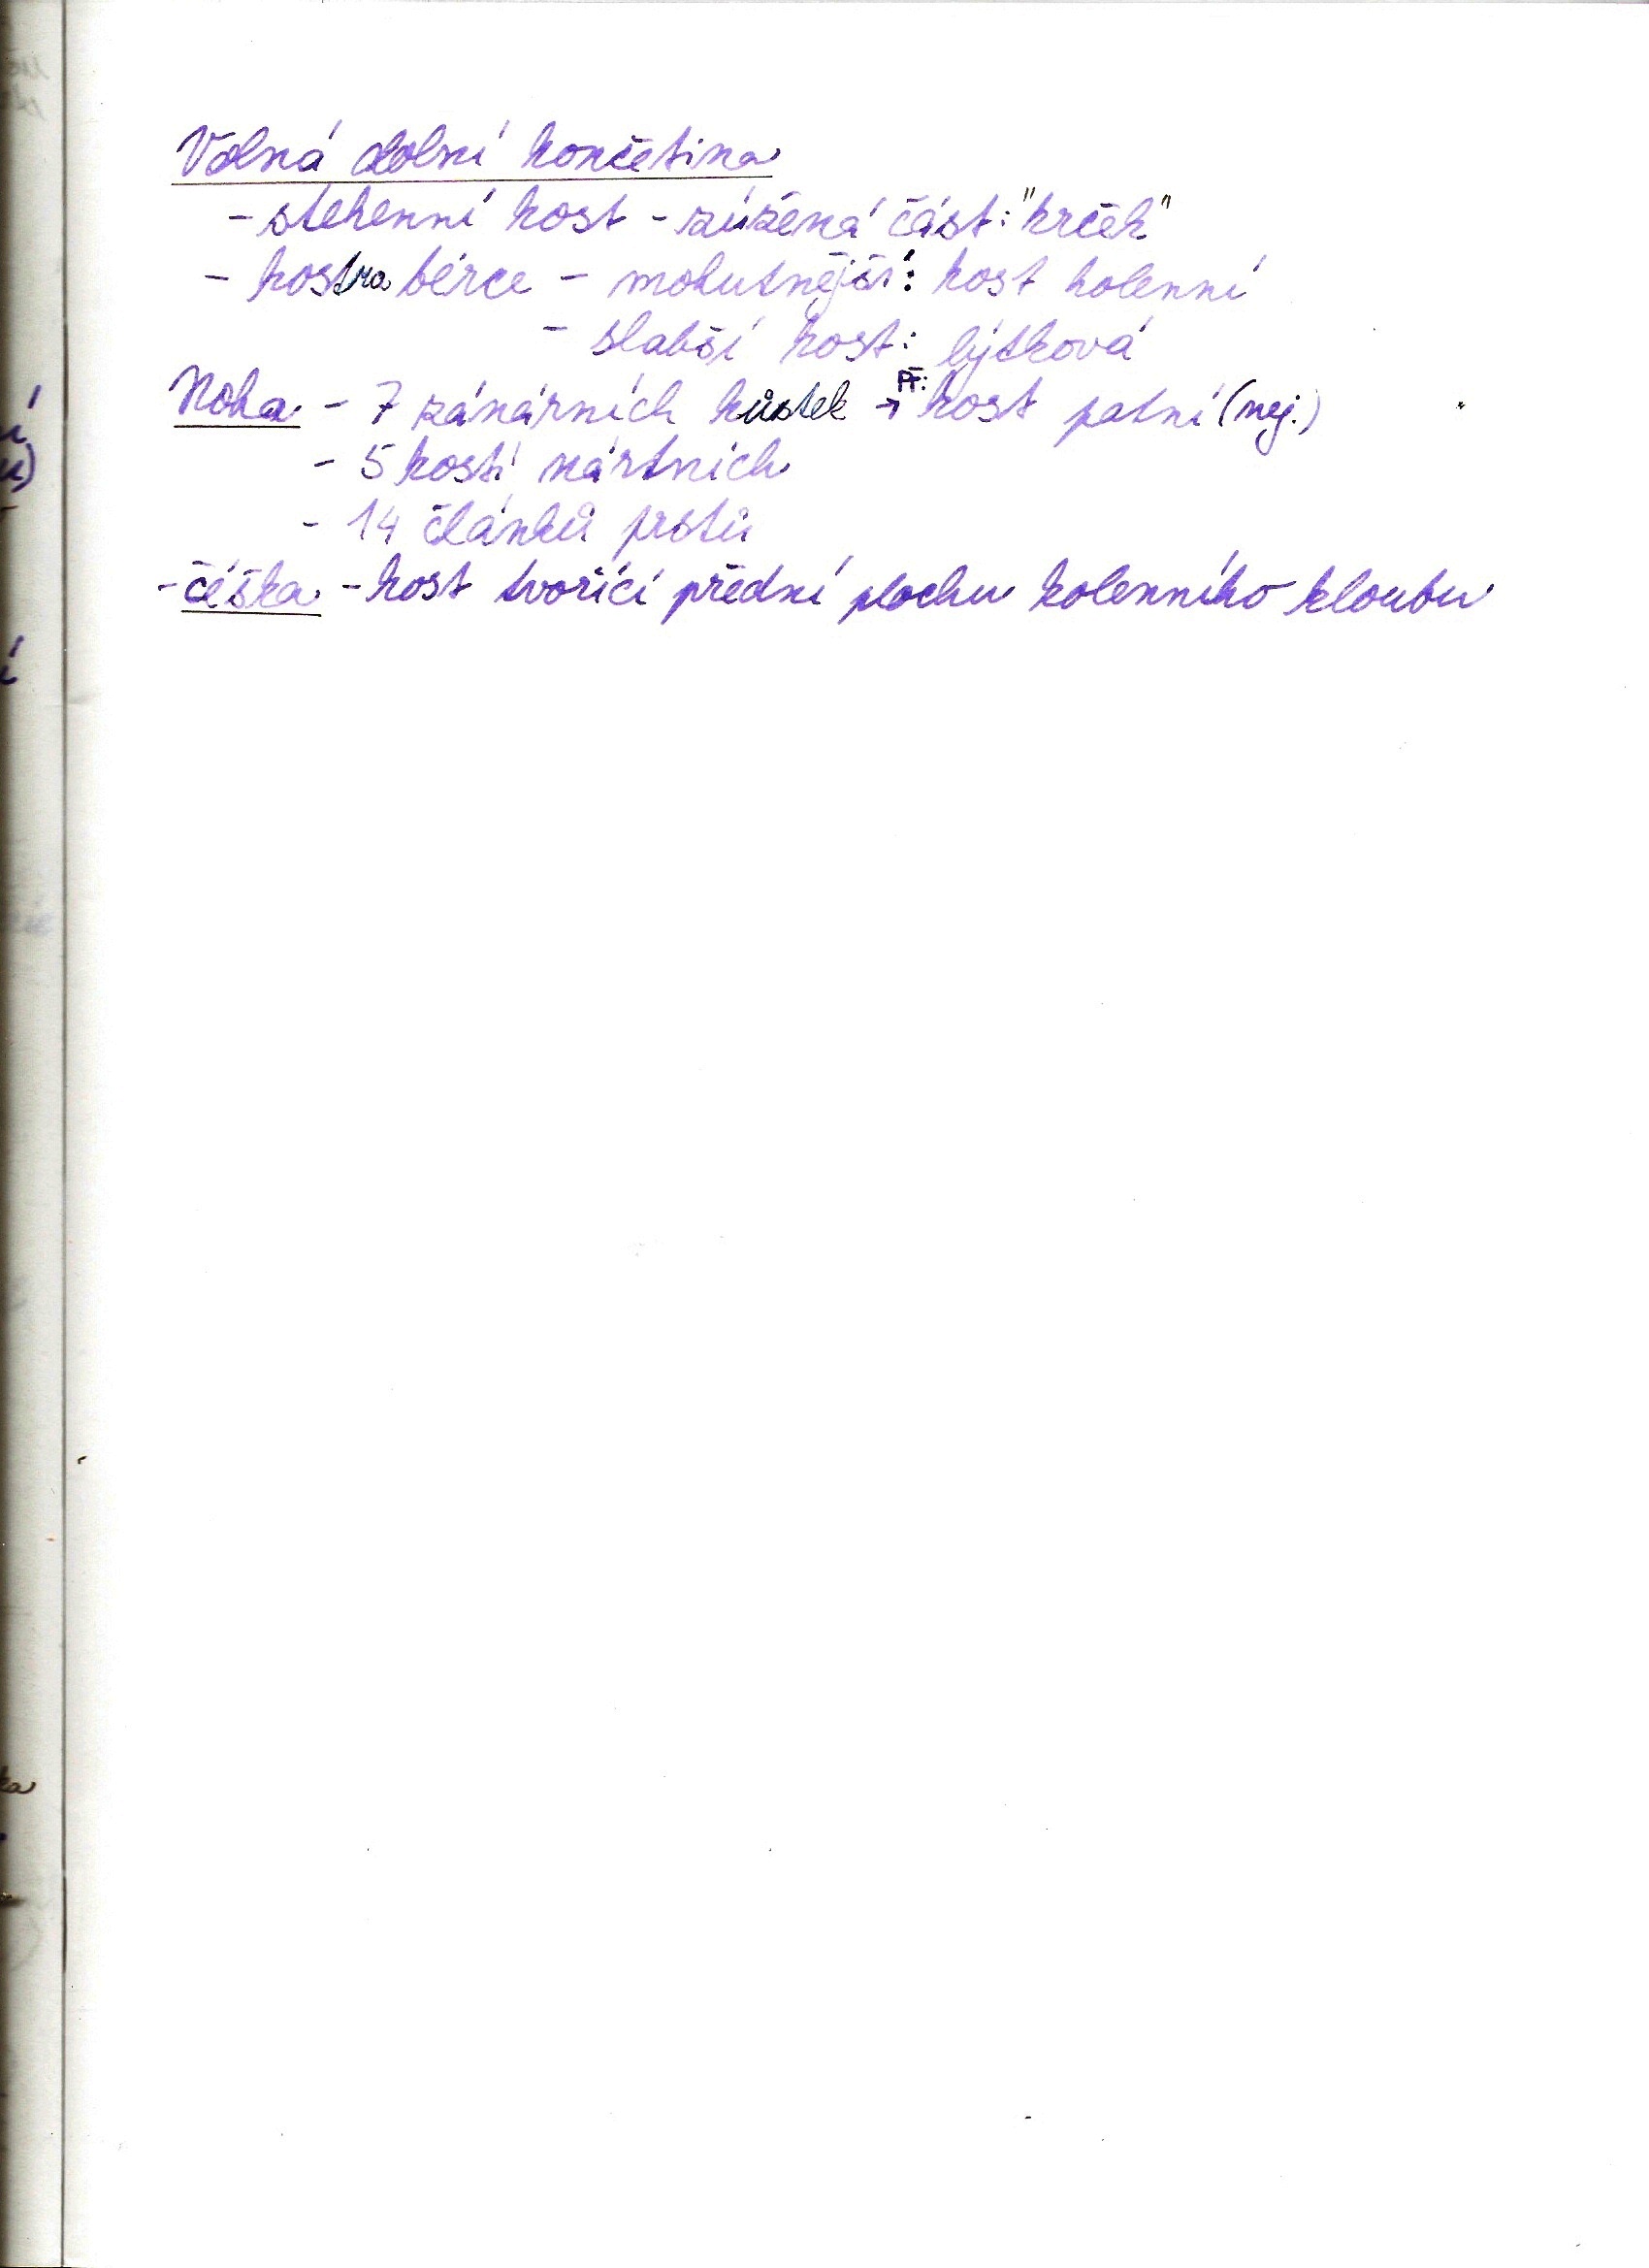 Volná dolní končetina
- stehenní kost - zúžená část: "krček"
- kostra bérce - mohutnější: kost holenní
- slabší kost: lýtková
Noha - 7 zánárních kůstek → Př: kost patní (nej.)
- 5 kostí nártních
- 14 článků prstů
- čéška - kost tvořící přední plochu kolenního kloubu